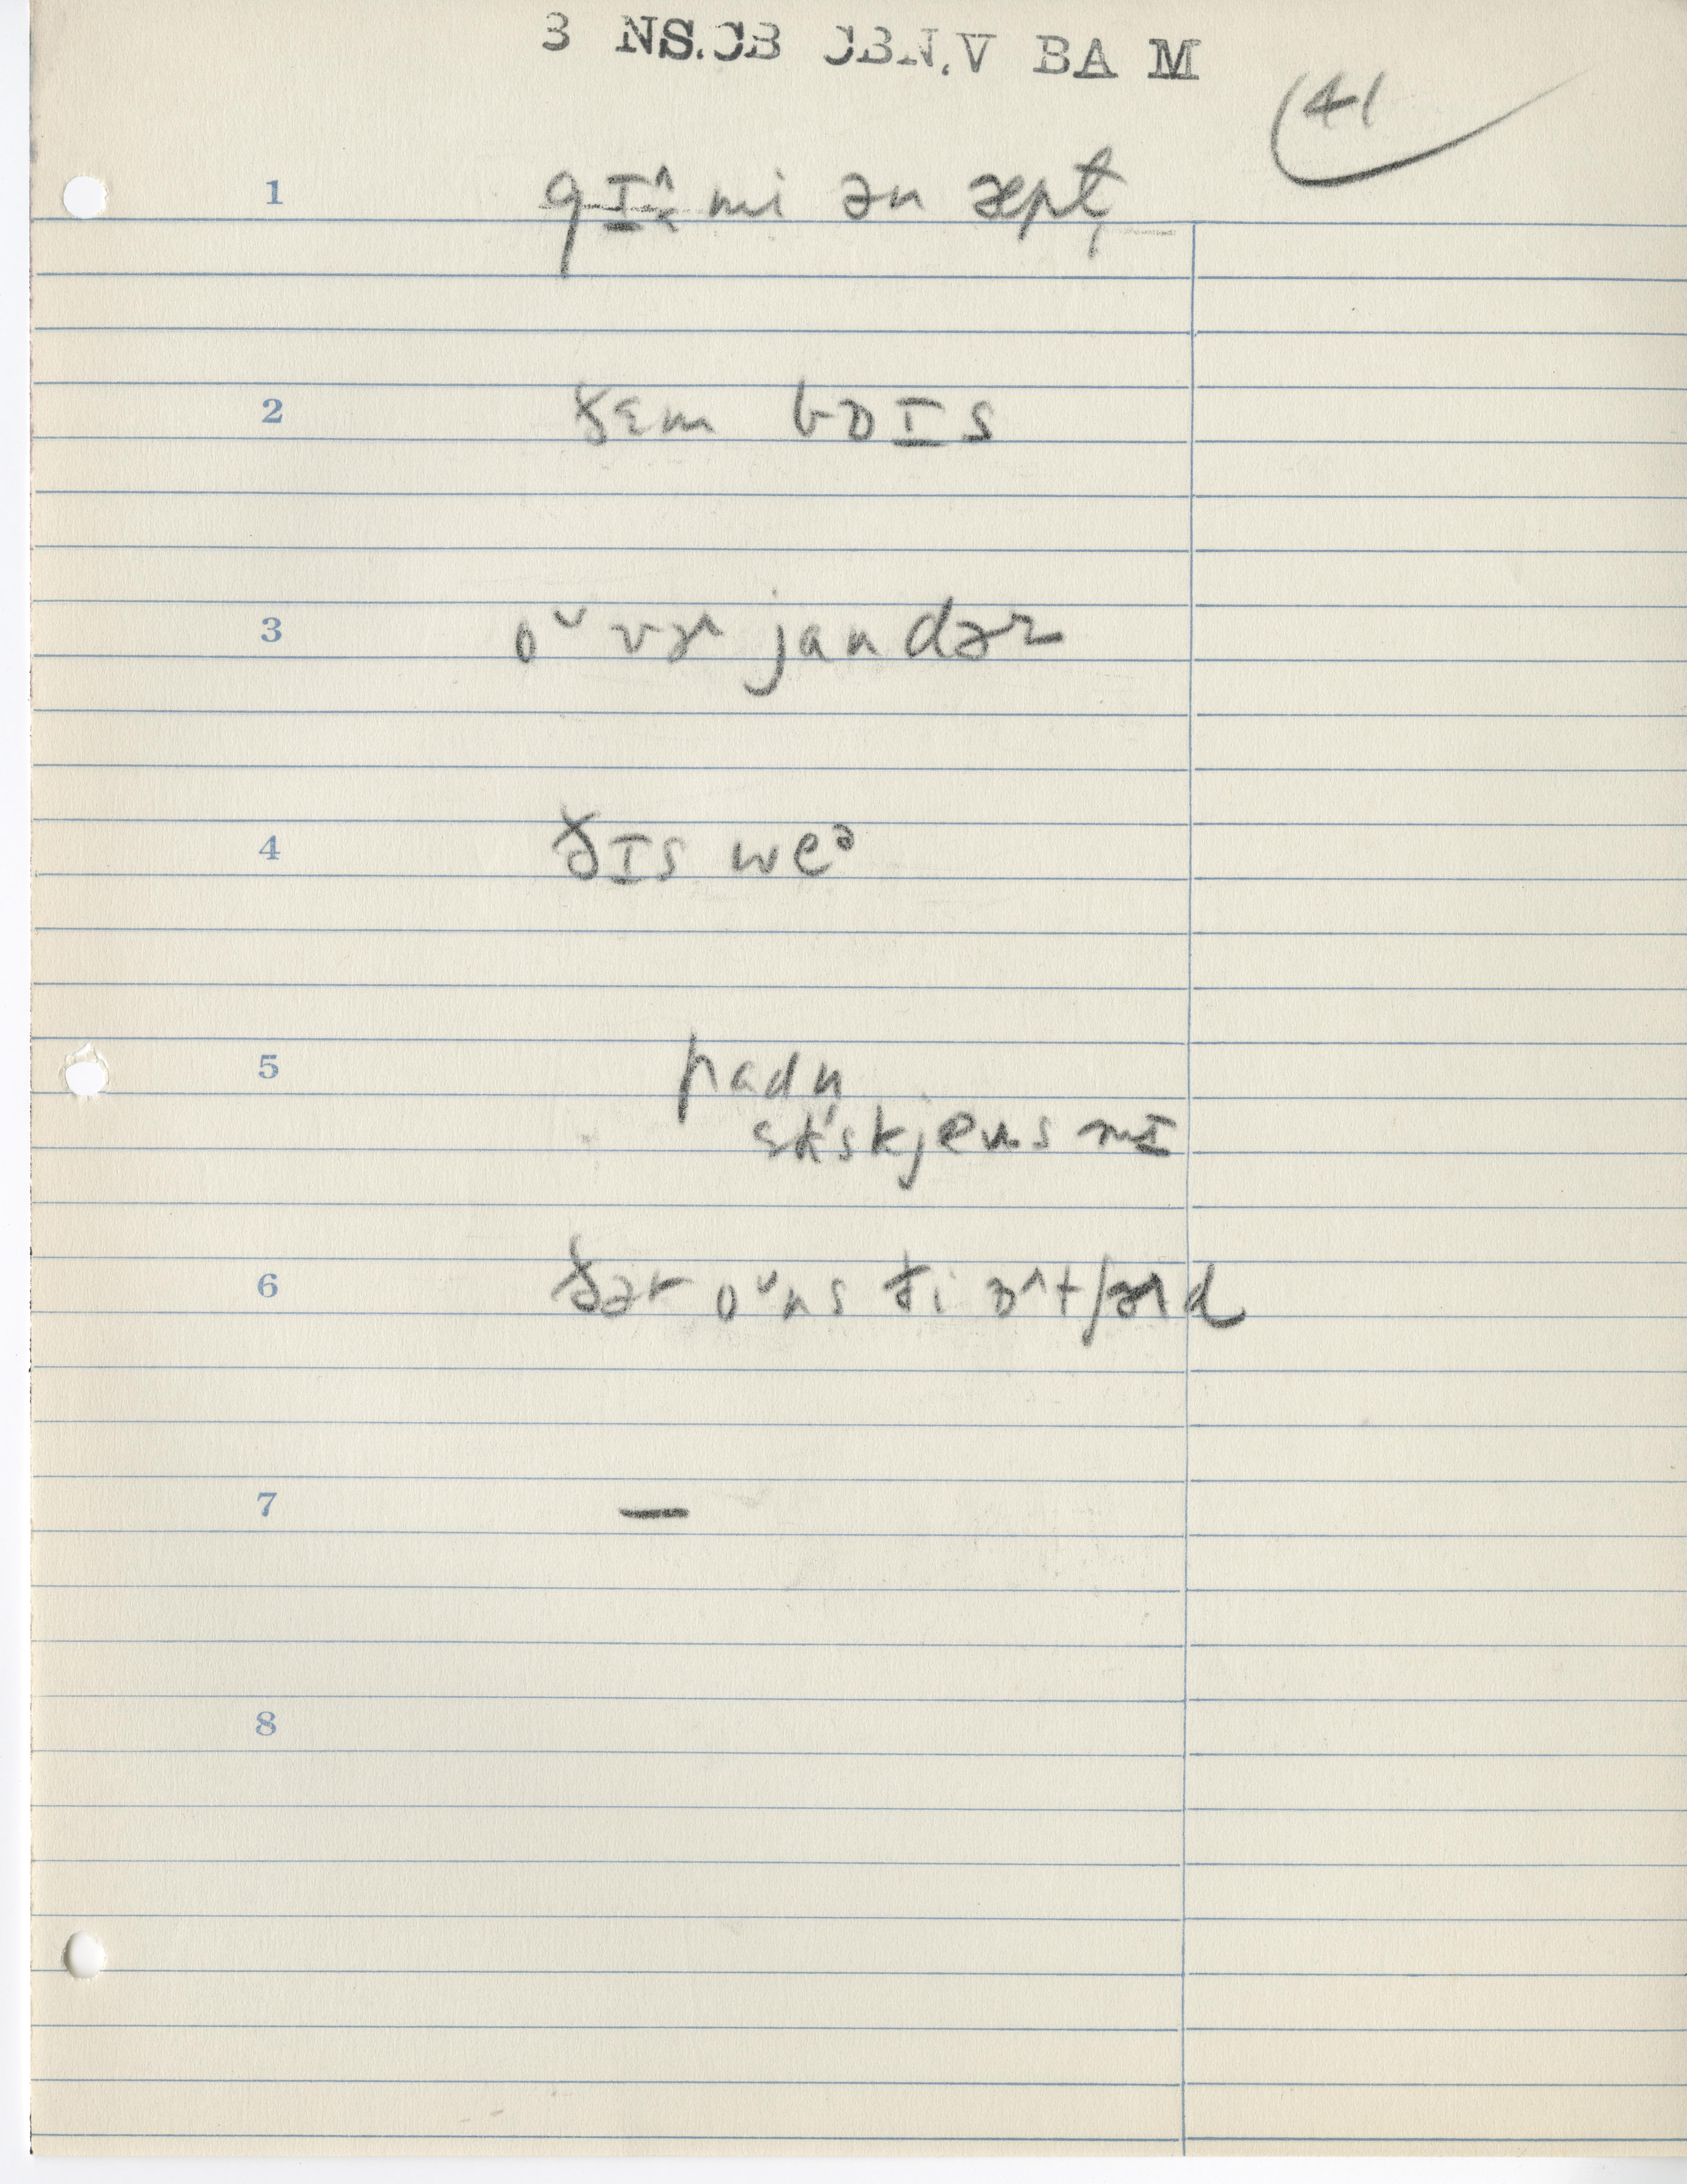 3 NS.CB CBN.V BA M
41
1 gɪ^ mi ən æpt
2 ðɛm bɒɪs
3 oᵕ vɚ jandər
4 ðɪs weᵊ
5 padn̩
skjeus mɪ
6 ðər oᵕns ði ɒ^tʃɚd
7 —
8